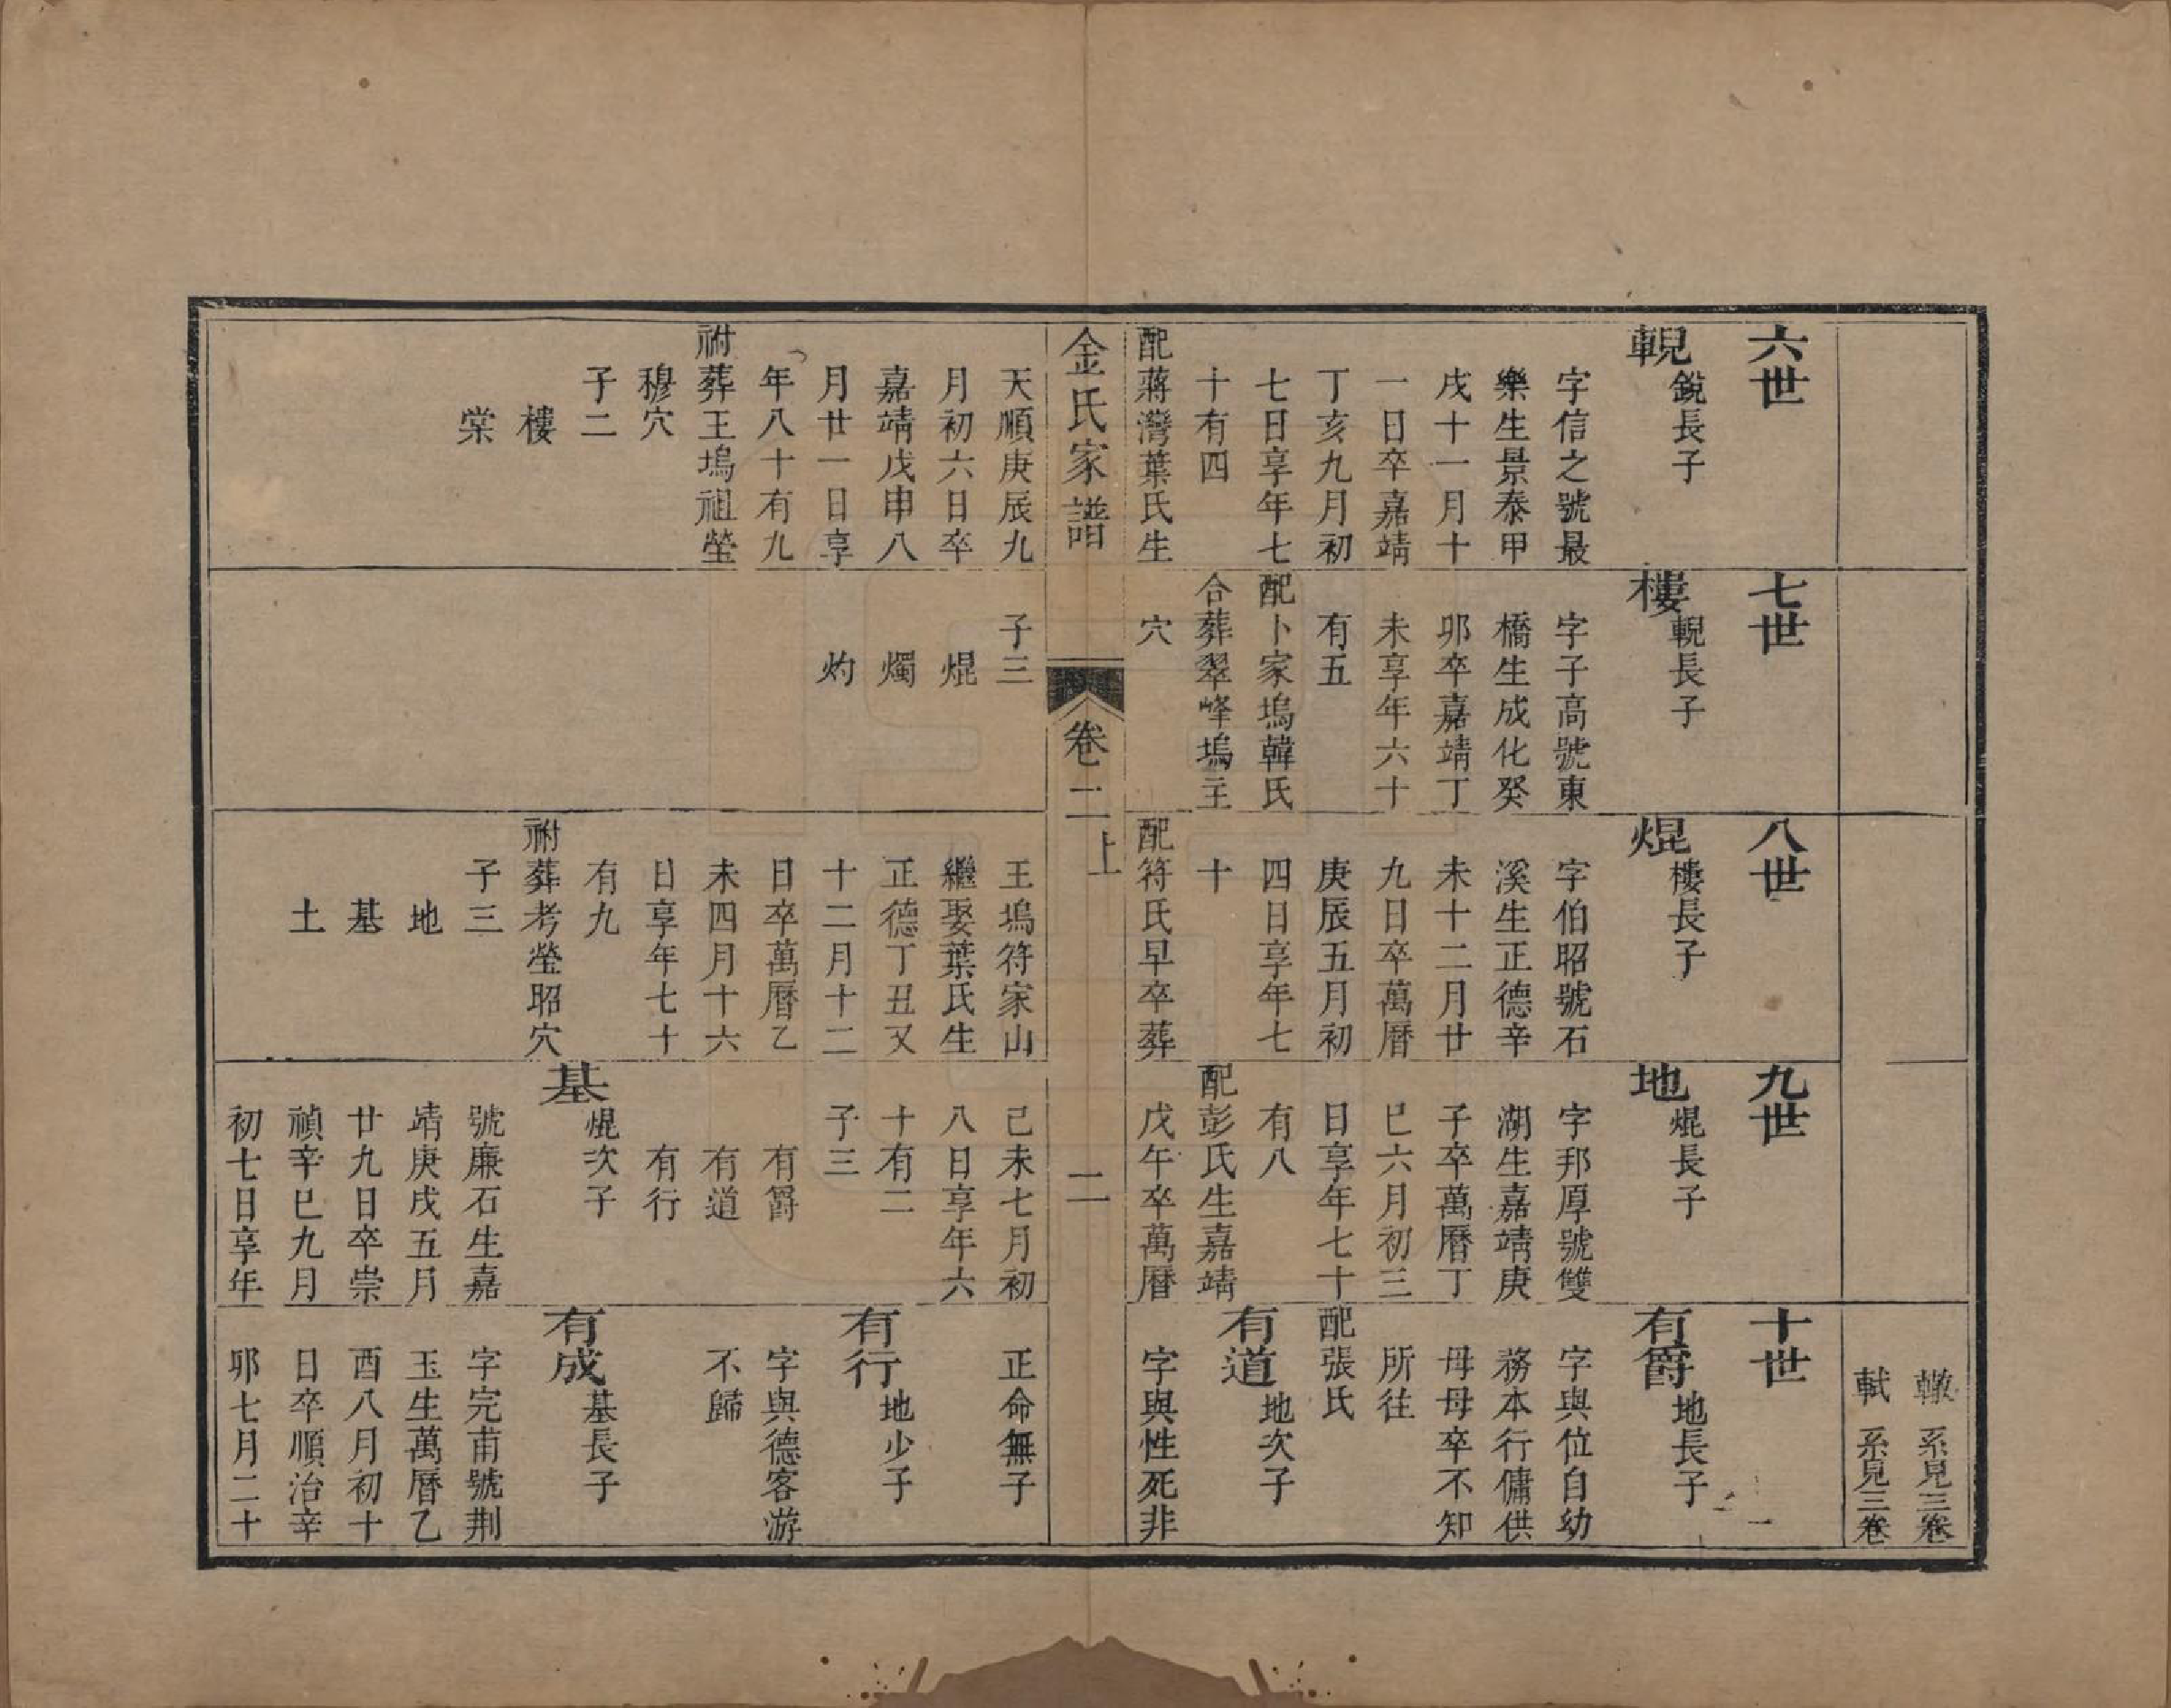 轍 系見三卷
軾 系見三卷
六世
輗 銳長子
字信之號最
樂生景泰甲
戌十一月十
一日卒嘉靖
丁亥九月初
七日享年七
十有四
配蔣灣葉氏生
天順庚辰九
月初六日卒
嘉靖戊申八
月廿一日享
年八十有九
祔葬王塢祖塋
穆穴
子二
樓
棠
七世
樓 輗長子
字子高號東
橋生成化癸
卯卒嘉靖丁
未享年六十
有五
配卜家塢韓氏
合葬翠峰塢主
穴
子三
焜
燭
灼
八世
焜 樓長子
字伯昭號石
溪生正德辛
未十二月廿
九日卒萬曆
庚辰五月初
四日享年七
十
配符氏早卒葬
王塢符家山
繼娶葉氏生
正德丁丑又
十二月十二
日卒萬曆乙
未四月十六
日享年七十
有九
祔葬考塋昭穴
子三
地
基
土
九世
地 焜長子
字邦厚號雙
湖生嘉靖庚
子卒萬曆丁
巳六月初三
日享年七十
有八
配彭氏生嘉靖
戊午卒萬曆
己未七月初
八日享年六
十有二
子三
有爵
有道
有行
基 焜次子
號廉石生嘉
靖庚戌五月
廿九日卒崇
禎辛巳九月
初七日享年
十世
有爵 地長子
字與位自幼
務本行傭供
母母卒不知
所往
配張氏
有道 地次子
字與性死非
正命無子
有行 地少子
字與德客游
不歸
有成 基長子
字完甫號荆
玉生萬曆乙
酉八月初十
日卒順治辛
卯七月二十
金氏家譜
卷二上
二